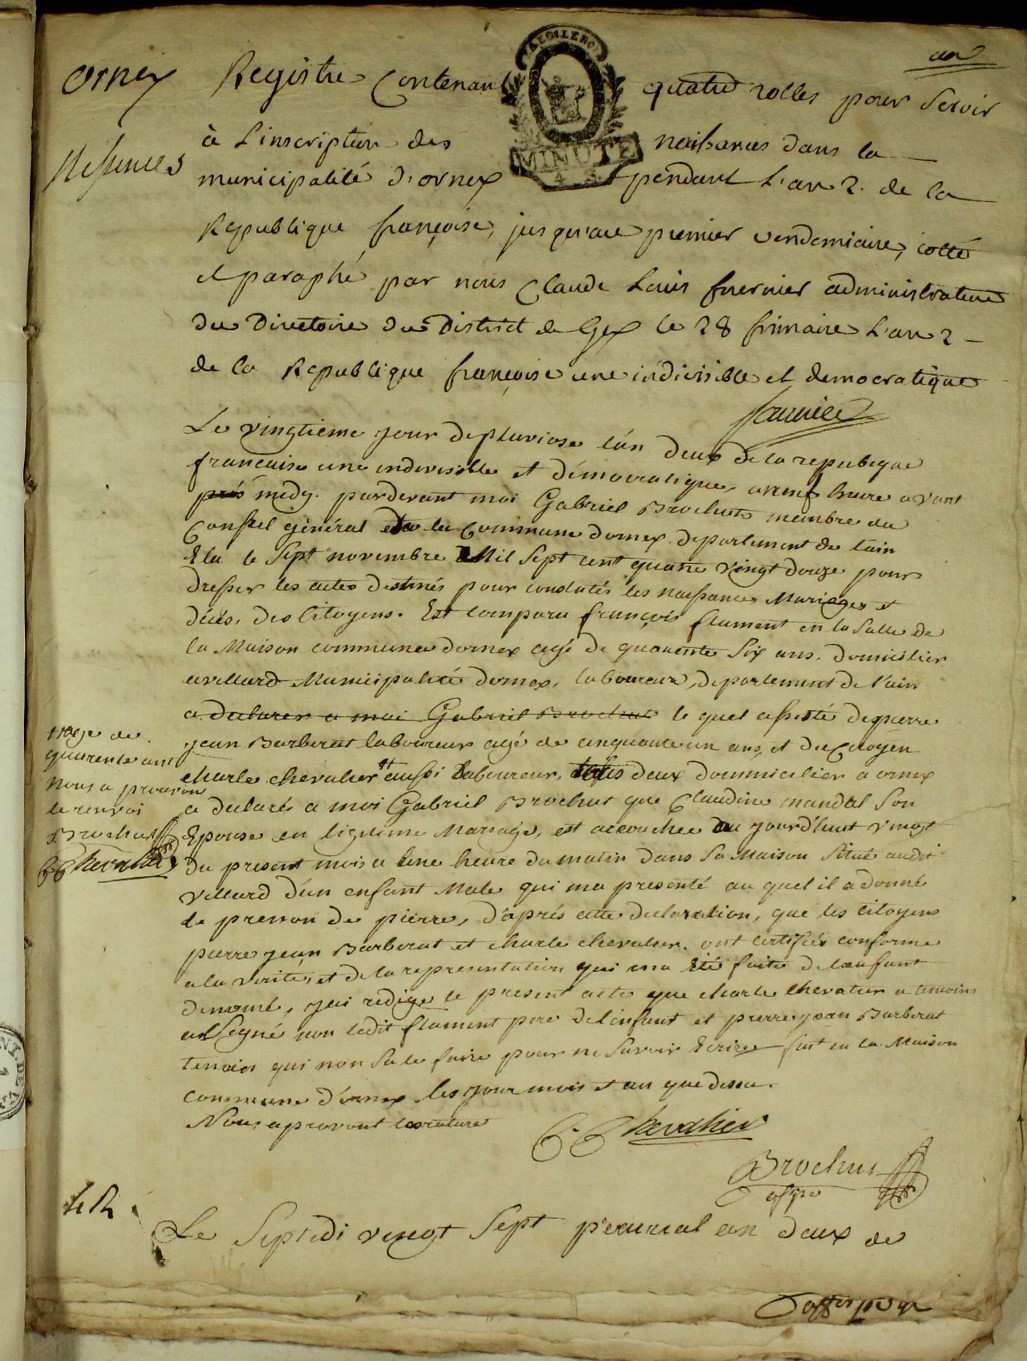 un
ornex Registre Contenant quatre rolles pour servir
à L'inscription des naissances dans la
Naissances
municipalité d'ornex pendant L'an 2. de la
MINUTE
Republique françoise, jusqu'au premier vendemiaire, cotté
et paraphé par nous Claude Louis fournier administrateur
du Directoire du District de Gex le 28 frimaire L'an 2
de la Republique françoise une indivisible et democratique
fournier
Le vingtieme jour de pluviose l'an deux de la republique
francaise une indivisible et démocratique, a neuf heure avant
midy. pardevant moi Gabriel Brochut membre du
Conseil général de la Commune dornex departement de l'ain
Elu le Sept novembre Mil Sept cent quatre vingt douze pour
dresser les actes destinés pour constatés les naissances Mariages et
décés, des Citoyens. Est comparu françois flament en la Salle de
la Maison commune dornex agé de quarente Six ans. domicilier
a villard Municipalité dornex, laboureur, departement de l'ain
a declarer a moi Gabriel Brochut le quel assisté de pierre
jean Barberat laboureur agé de cinquante un ans, et du Citoyen
charle chevalier # aussi Laboureur, deux dommicilier a ornex
a declarés a moi Gabriel Brochut que Claudine mandal Son
Epouse en ligitime Mariage, est accouchee au jourd'huit vingt
Du present mois a une heure du matin dans Sa Maison Situé audit
villard d'un enfant Male qui ma presenté au quel il a donné
le prenon de pierre, d'aprés cette declaration, que les Citoyens
pierre jean Barberat et charle chevalier. ont certifiés conforme
a la verité, et de la representation qui ma été faite de l'enfant
denomé, jai redigé le present acte que charle chevalier a temoins
a Signé non ledit flament pere de l'enfant et pierre jean Barberat
temoins qui non Sa le faire pour ne Savoir Ecrire fait en la Maison
commune d'ornex les jour mois et an que dessu.
Nous aprovont la rature
C. Chevalier
Brochut
offpu
# age de
quarente ans
Nous aprouvon
le renvoi
Brochut
C. Chevalier
Le Septidi vingt Sept preairial an deux de